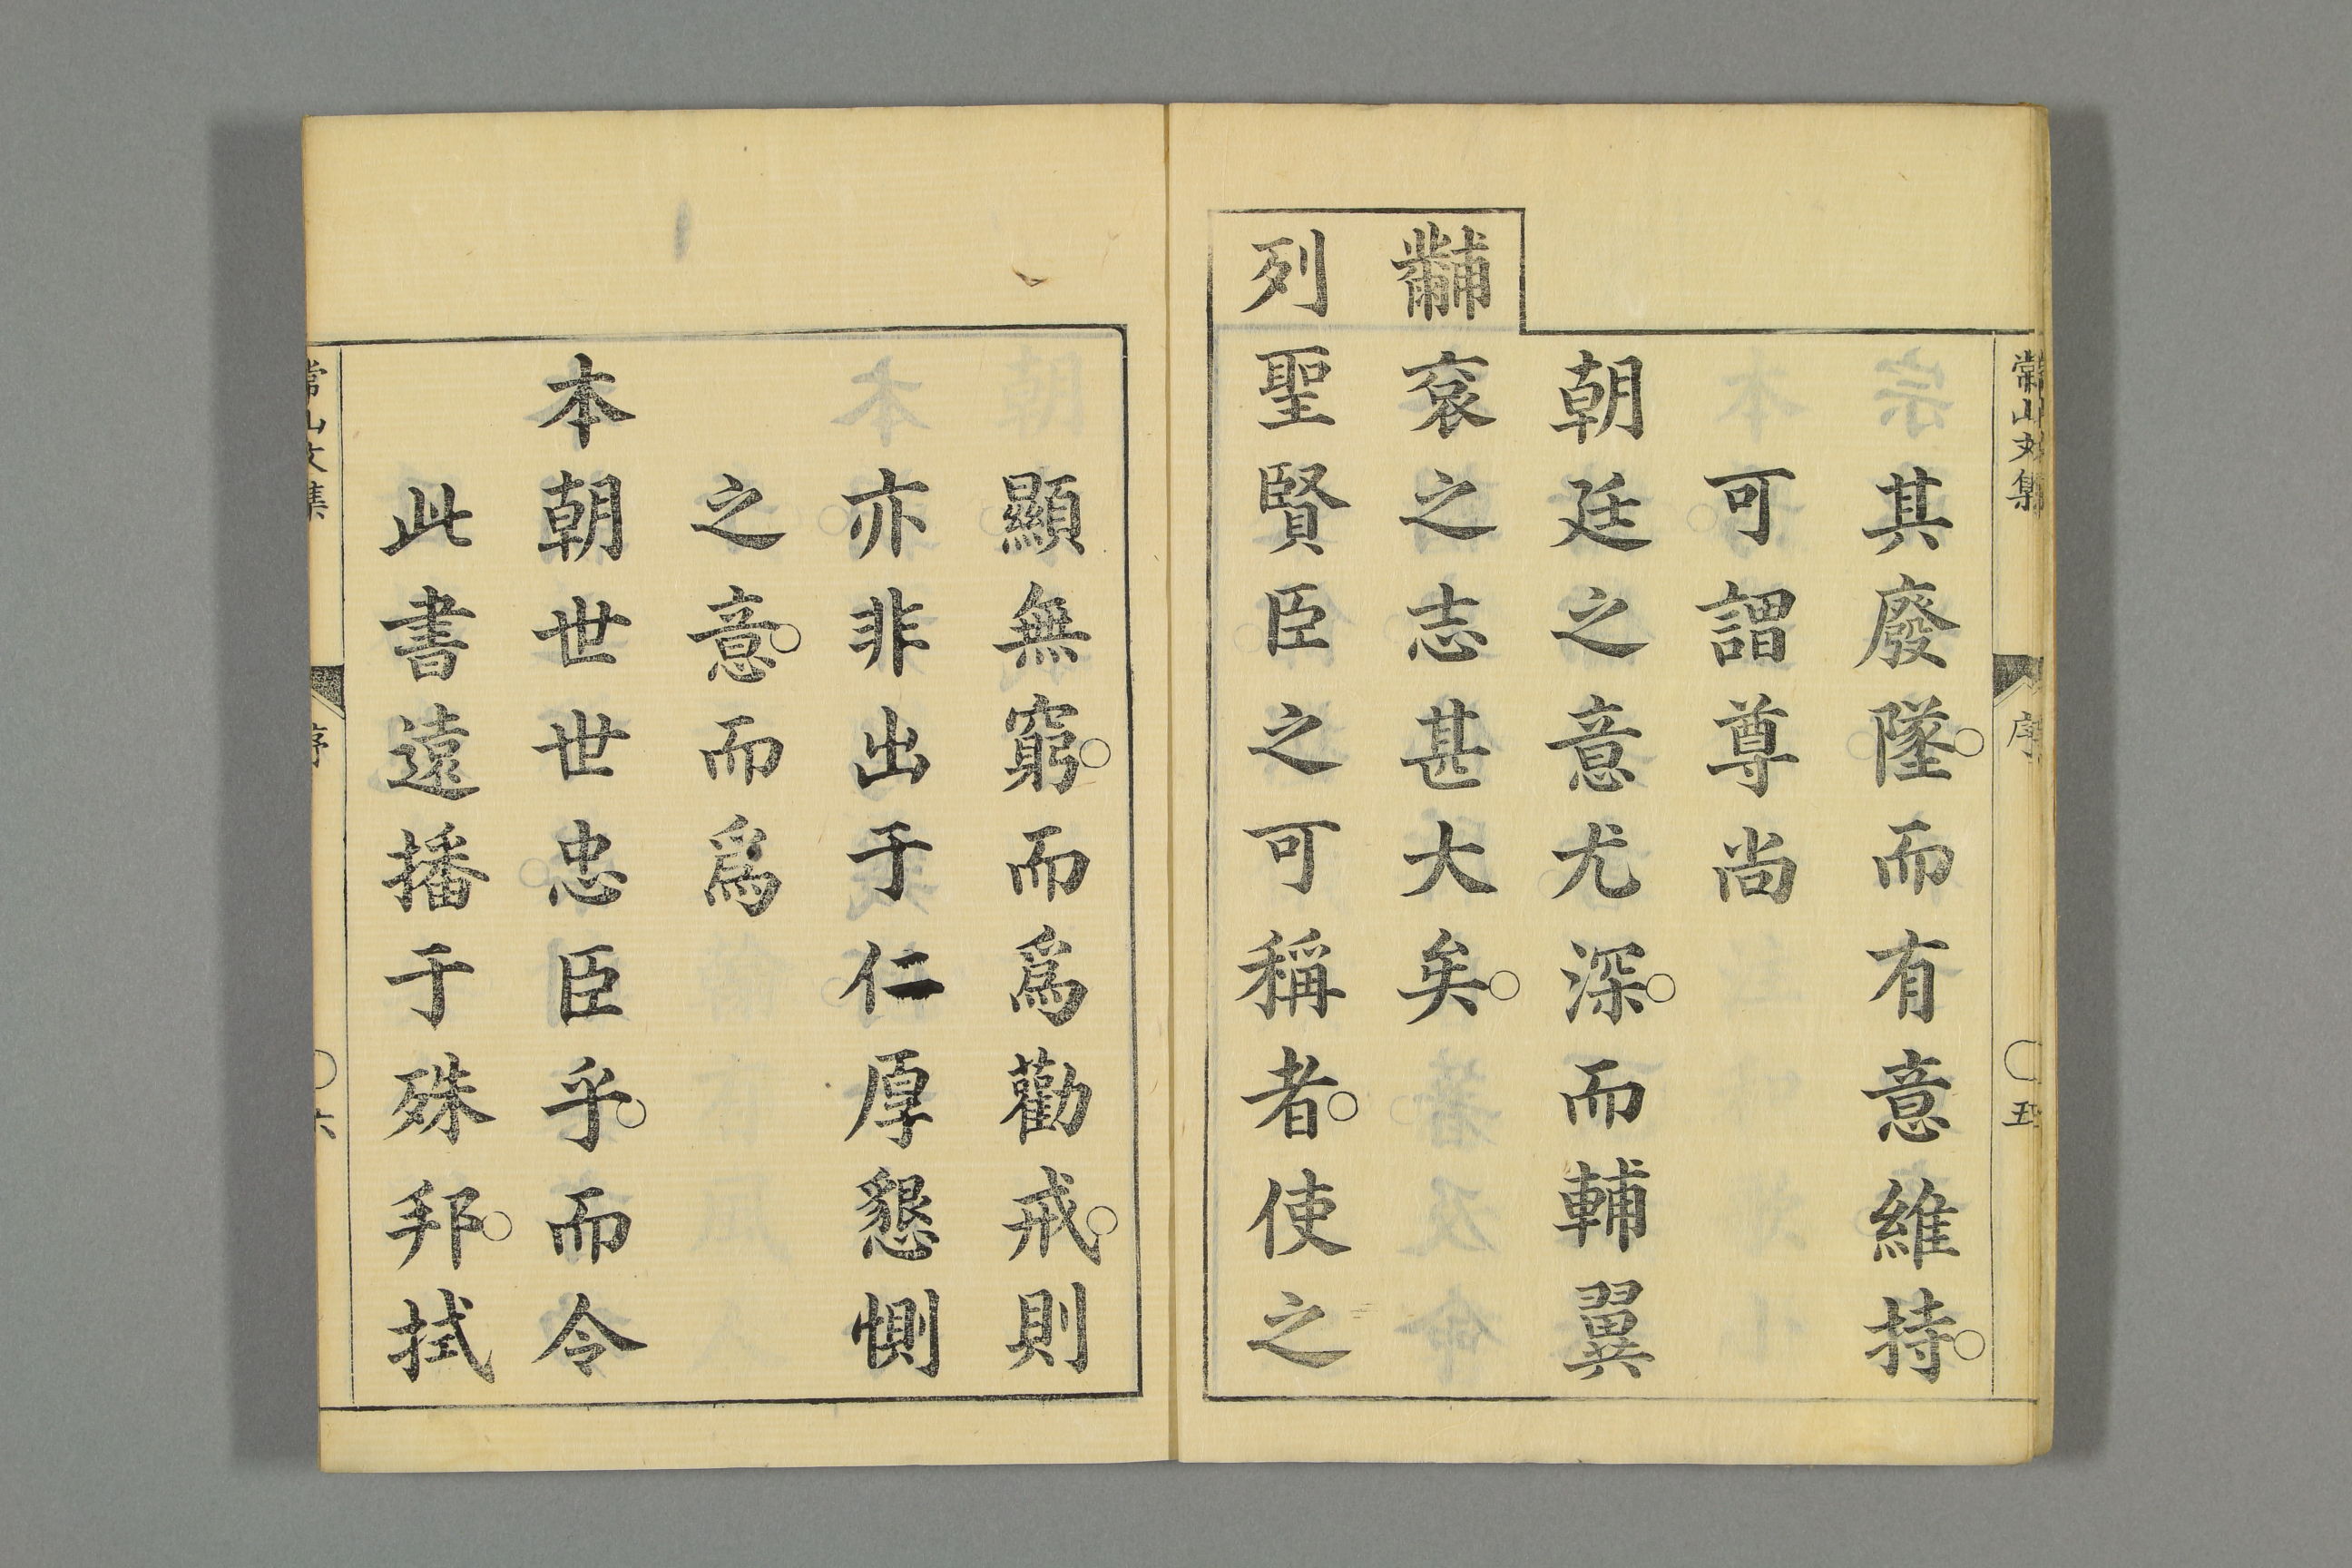 常山文集
序
〇五
其廢墜〇而有意維持〇
可謂尊尚
朝廷之意尤深〇而輔翼
黼袞之志甚大矣〇
列聖賢臣之可稱者〇使之
顯無窮〇而爲勸戒〇則
亦非出于仁厚懇惻
之意〇而爲
本朝世世忠臣乎〇而令
此書遠播于殊邦〇拭
常山文集
序
〇六